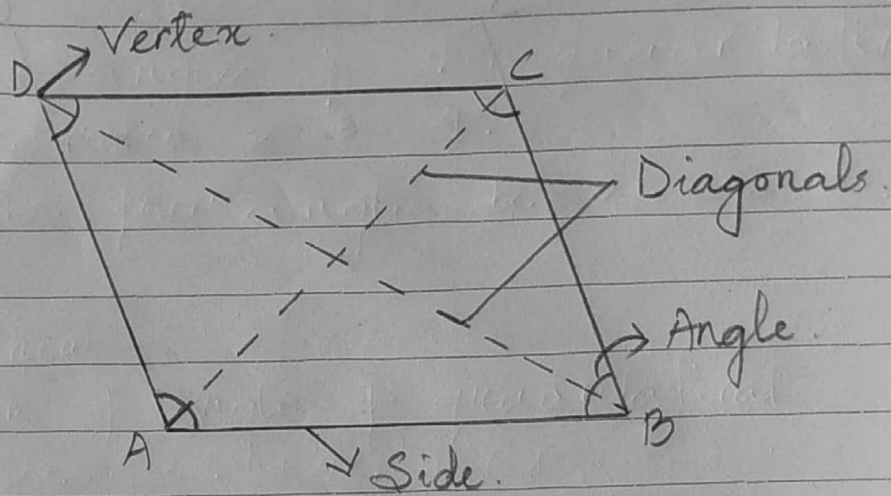 Vertex.
D
C
Diagonals.
Angle.
A
B
Side.